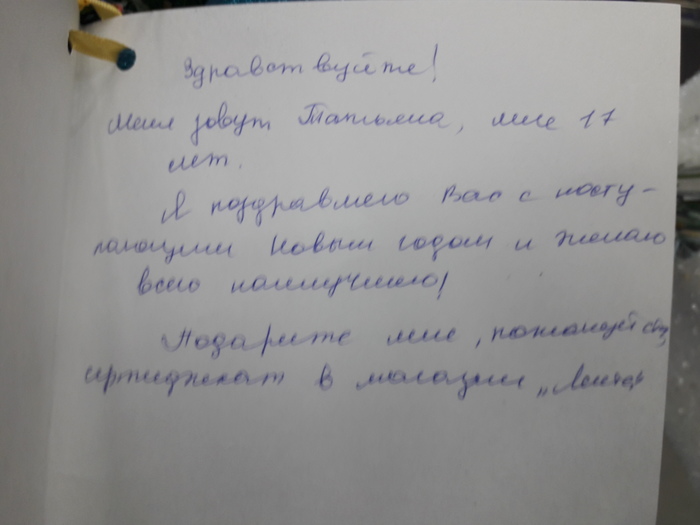 Здравствуйте!
Меня зовут Татьяна, мне 17
лет.
Я поздравляю Вас с насту-
пающим Новым годом и желаю
всего наилучшего!
Подарите мне, пожалуйста,
сертификат в магазин „Лента"